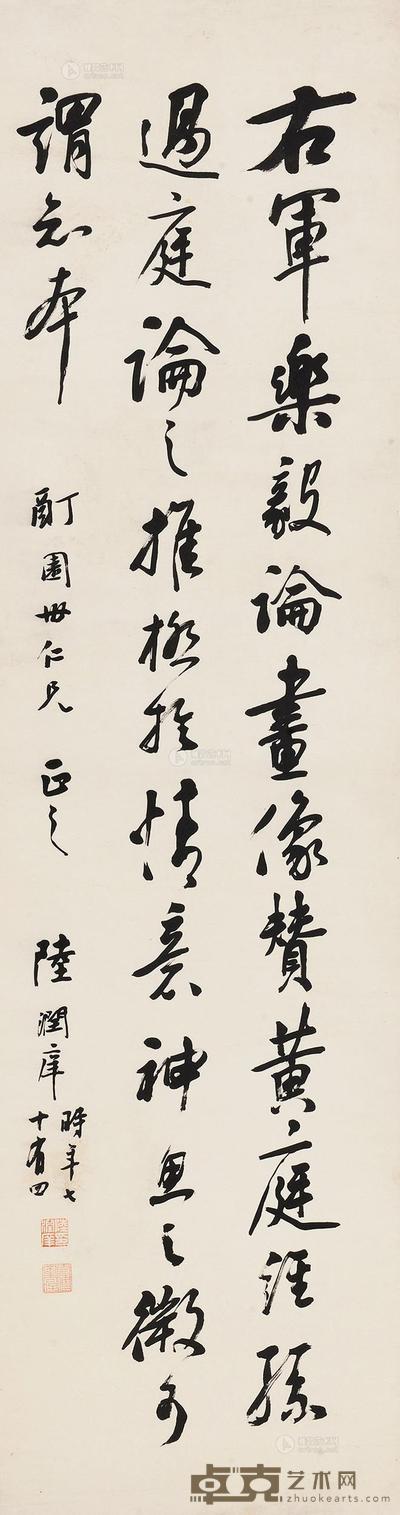 右軍樂毅論畫像贊黃庭經孫
過庭論之推極於情意神思之微可
謂知本
酊園世仁兄 正之
陸潤庠 時年七
十有四
卓克艺术网
zhuokearts.com